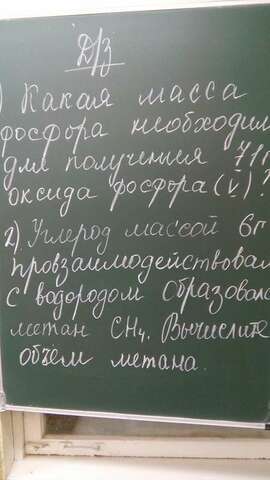 Д/з
) Какая масса
фосфора необходим
для получения 71г
оксида фосфора (V)?
2) Углерод массой 6г
провзаимодействовал
с водородом образовало
метан CH4. Вычислите
объём метана.